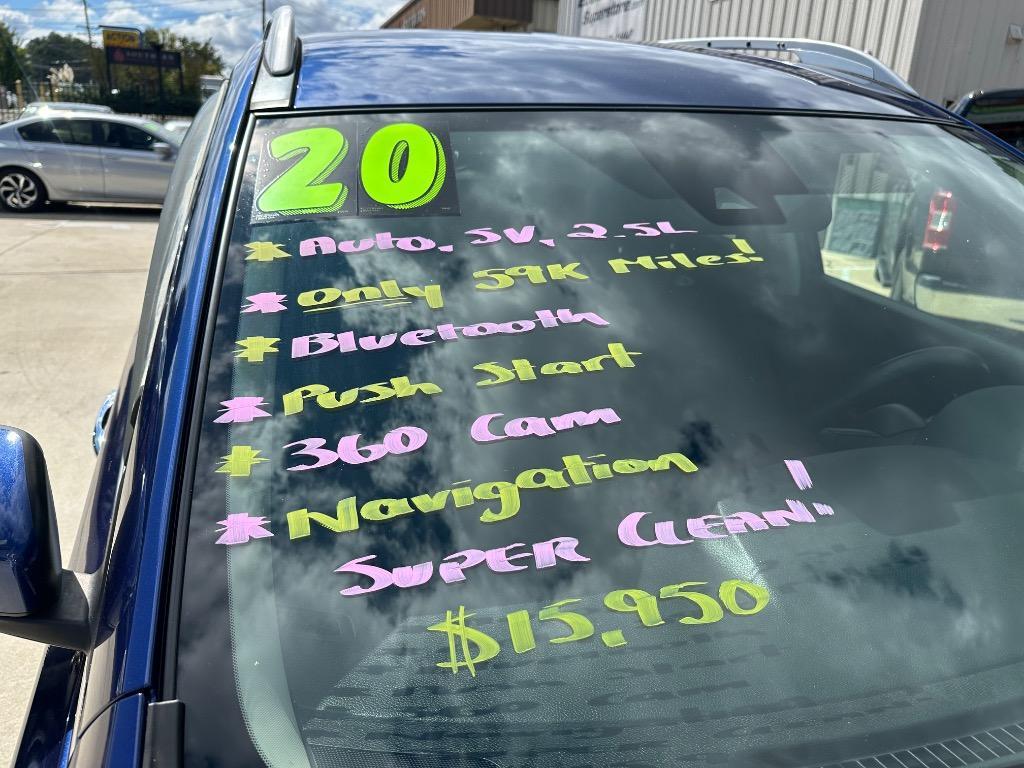 20
* Auto, SV, 2.5L
* Only 59K Miles!
* Bluetooth
* Push Start
* 360 Cam
* Navigation
"Super Clean!"
$15,950